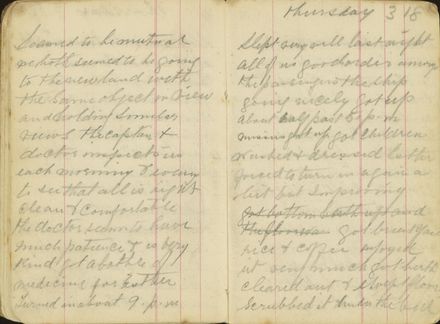 Seemed to be mutual
whole seemed to be going
to the new land with
the same object in view
and holding similar
views The captain &
doctor inspects us
each morning & evening
to see that all is right
clean & comfortable
the doctor seems to have
much patience & is very
kind got a bottle of
medicine for Esther
Turned in about 9 p.m
Thursday 3 18
Slept very well last night
all of us good order among
the passengers the ship
going nicely got up
about half past 5 p.m
got up got children
washed & dressed Esther
forced to turn in again a
bit but improving
got bottom berth up and
the got breakfast
rice & coffee enjoyed
it very much got berth
cleared out & swept floor
scrubbed it under the bed